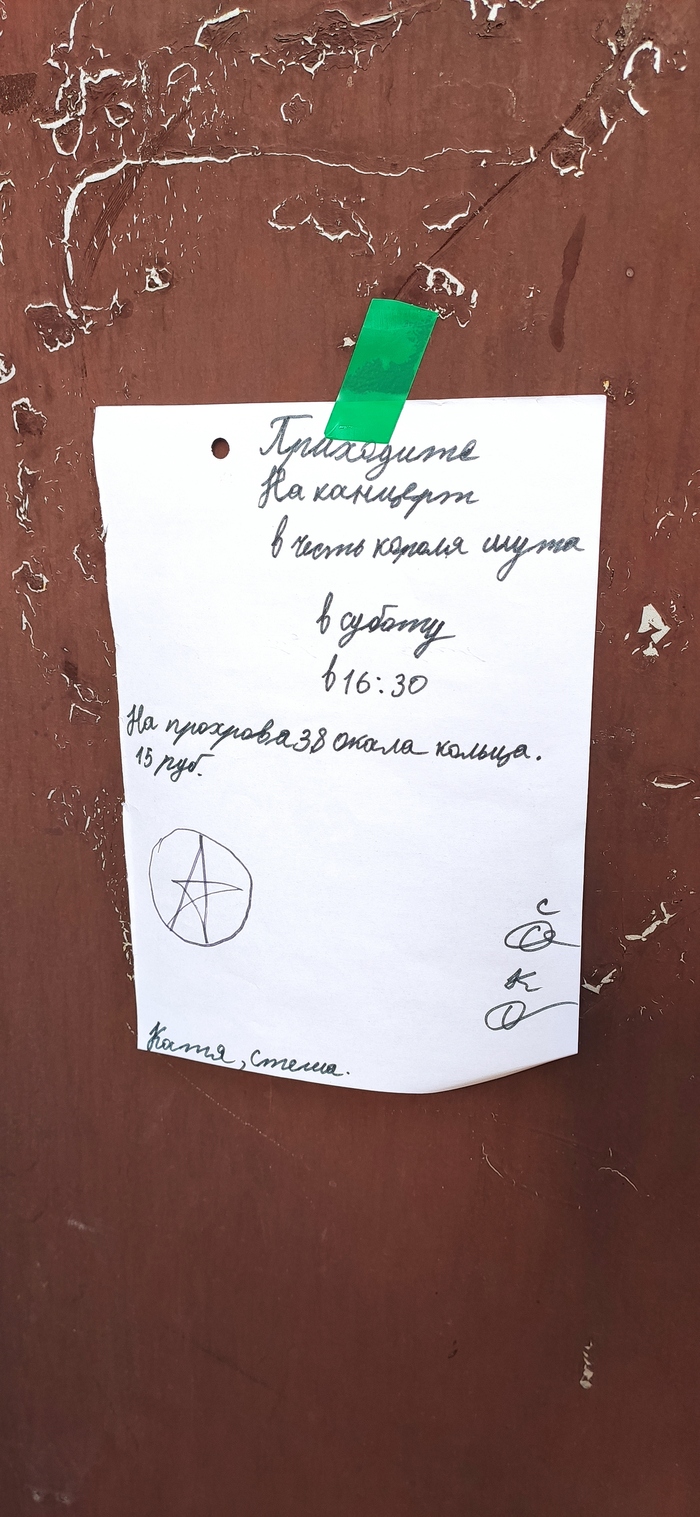 Приходите
На канцерт
в честь короля шута
в суботу
в 16:30
На прохрова 38 окала кольца.
15 руб.
С
К
Катя, Стеша.